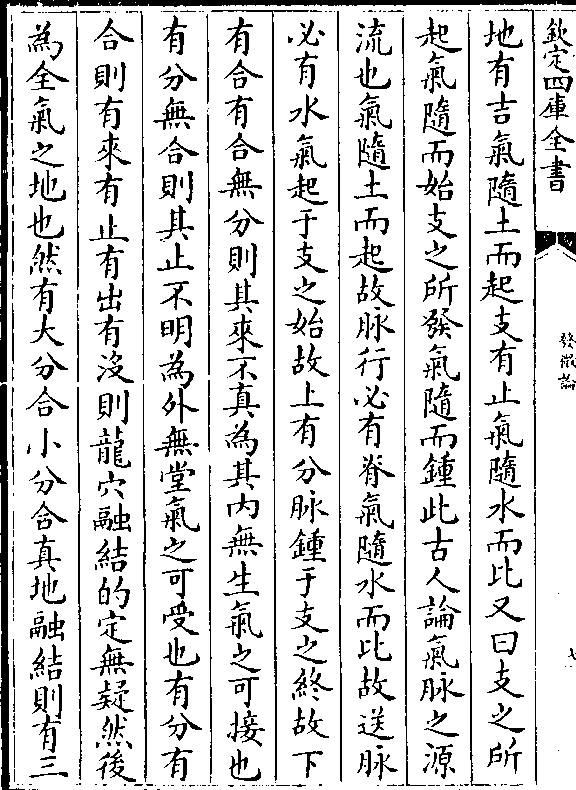 欽定四庫全書
發微論
七
地有吉氣隨土而起支有止氣隨水而比又曰支之所
起氣隨而始支之所發氣隨而鍾此古人論氣脉之源
流也氣隨土而起故脉行必有脊氣隨水而比故送脉
必有水氣起于支之始故上有分脉鍾于支之終故下
有合有合無分則其來不真為其内無生氣之可接也
有分無合則其止不明為外無堂氣之可受也有分有
合則有來有止有出有沒則龍穴融結的定無疑然後
為全氣之地也然有大分合小分合真地融結則有三